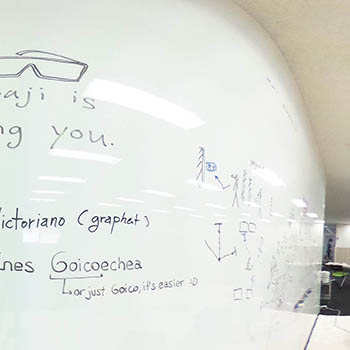 aji is
ng you.
ictoriano (graphat)
nes Goicoechea
↳or just Goico, it's easier =D